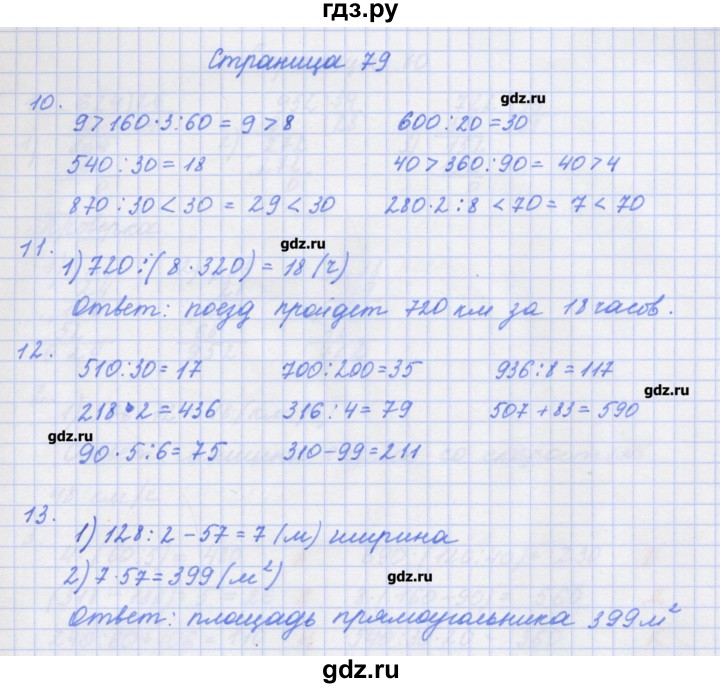 гдз.ру
Страница 79
gdz.ru
10.
9>160·3:60=9>8 600:20=30
540:30=18 40>360:90= 40>4
870:30<30 = 29<30 280·2:8 <70= 7<70
gdz.ru
11.
1)720:(8·320)=18(ч)
Ответ: поезд пройдет 720 км за 18 часов.
12.
510:30=17 700:200=35 936:8=117
gdz.ru
218·2=436 316:4=79 507+83=590
gdz.ru
90·5:6=75 310-99=211
13.
1)128:2-57=7(м) ширина
2)7·57=399(м²)
gdz.ru
Ответ: площадь прямоугольника 399м²
gdz.ru